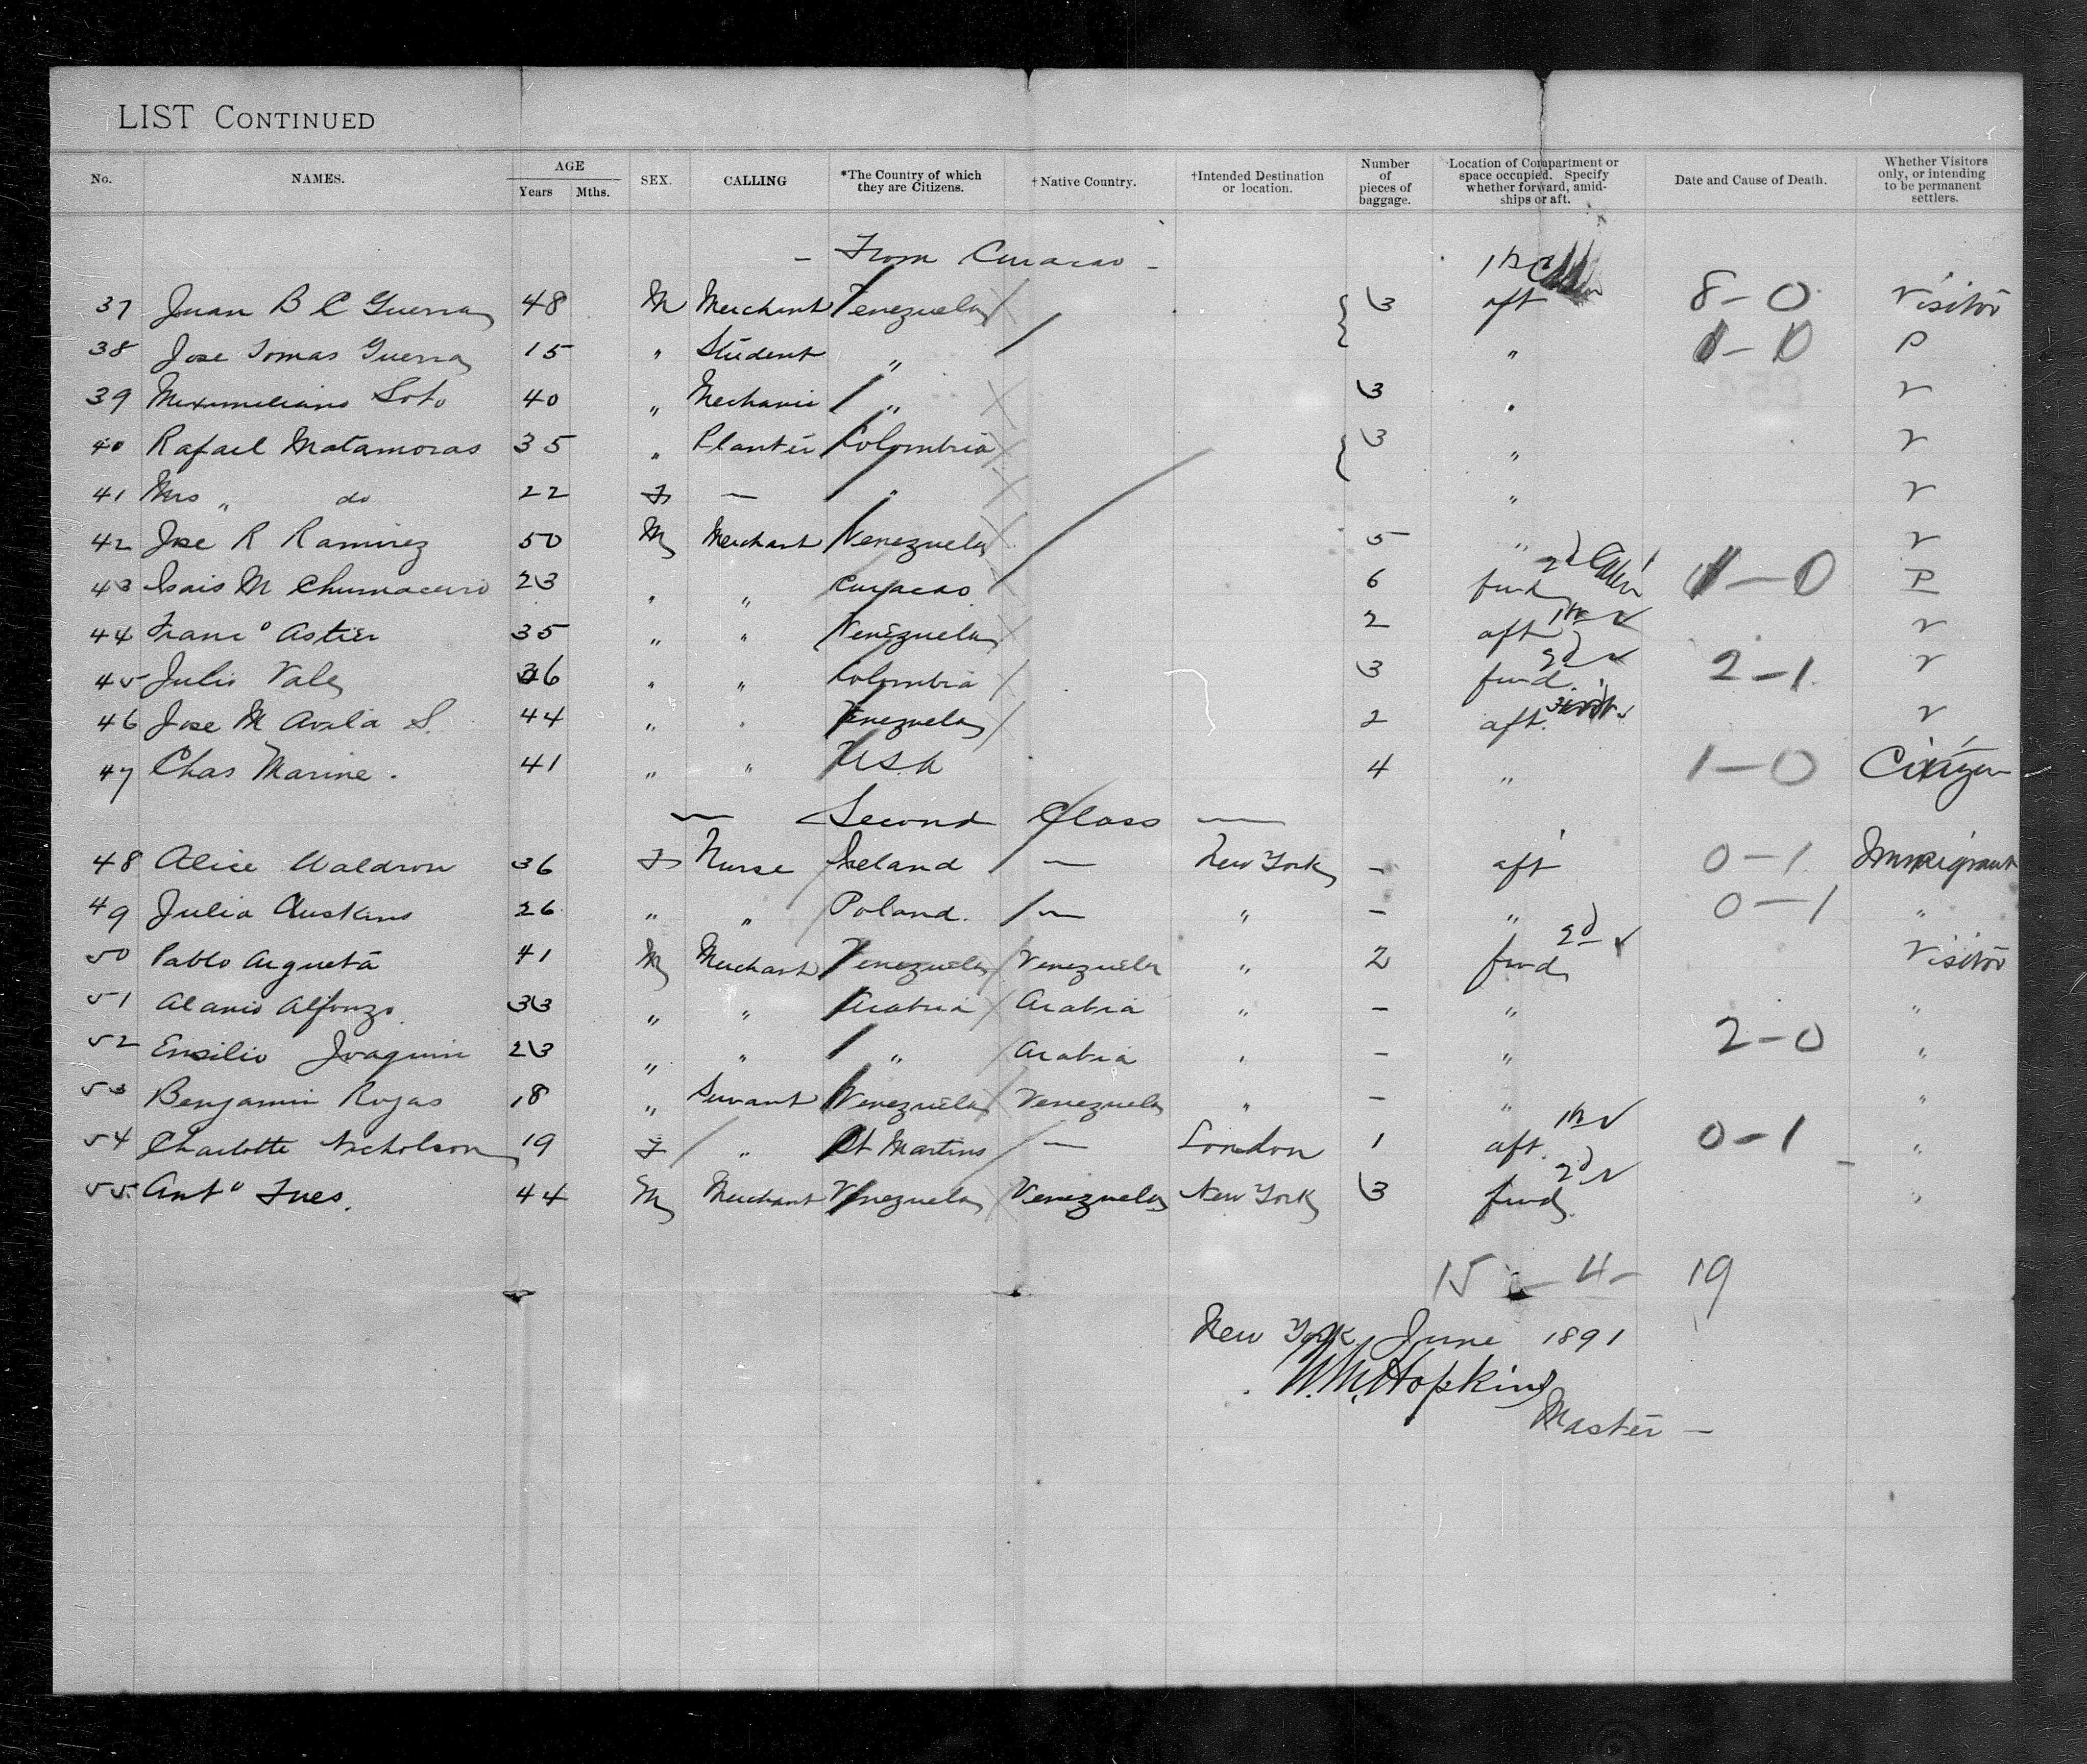 LIST CONTINUED
No. NAMES. AGE Years Mths. SEX. CALLING *The Country of which they are Citizens. †Native Country. †Intended Destination or location. Number of pieces of baggage. Location of Compartment or space occupied. Specify whether forward, amid-ships or aft. Date and Cause of Death. Whether Visitors only, or intending to be permanent settlers.
– From Curacao –
37 Juan B C Guerra 48 M Merchant Venezuela 3 aft 8–0 Visitor
38 Jose Tomas Guerra 15 " Student " " P
39 Maximiliano Soto 40 " Mechanic " 3 " v
40 Rafael Matamoras 35 " Planter Colombia 3 " v
41 Mrs " do 22 F — " " v
42 Jose R Ramirez 50 M Merchant Venezuela 5 " v
43 Isais M Chumaceiro 23 " " Curacao 6 fwd 2d Cabin 1–0 P
44 Franc° Astier 35 " " Venezuela 2 aft v
45 Julio Vale 36 " " Colombia 3 fwd 2d 2–1 v
46 Jose M Avila S. 44 " " Venezuela 2 aft. v
47 Chas Marine. 41 " " USA 4 " 1–0 Citizen
— Second Class —
48 Alice Waldron 36 F Nurse Ireland — New York – aft 0–1 Immigrant
49 Julia Auskins 26 " " Poland. — " – " 0–1 "
50 Pablo Argueta 41 M Merchant Venezuela Venezuela " 2 fwd 2d Visitor
51 Alanis Alfonzo 33 " " Arabia Arabia " – " "
52 Emilio Joaquin 23 " " " Arabia " – " 2–0 "
53 Benjamin Rojas 18 " Servant Venezuela Venezuela " – " "
54 Charlotte Nicholson 19 F " St Martins — London 1 aft. 0–1 "
55 Ant° Ines. 44 M Merchant Venezuela Venezuela New York 3 fwd. 2d "
15 – 4 – 19
New York June 1891
W.M. Hopkins
Master –